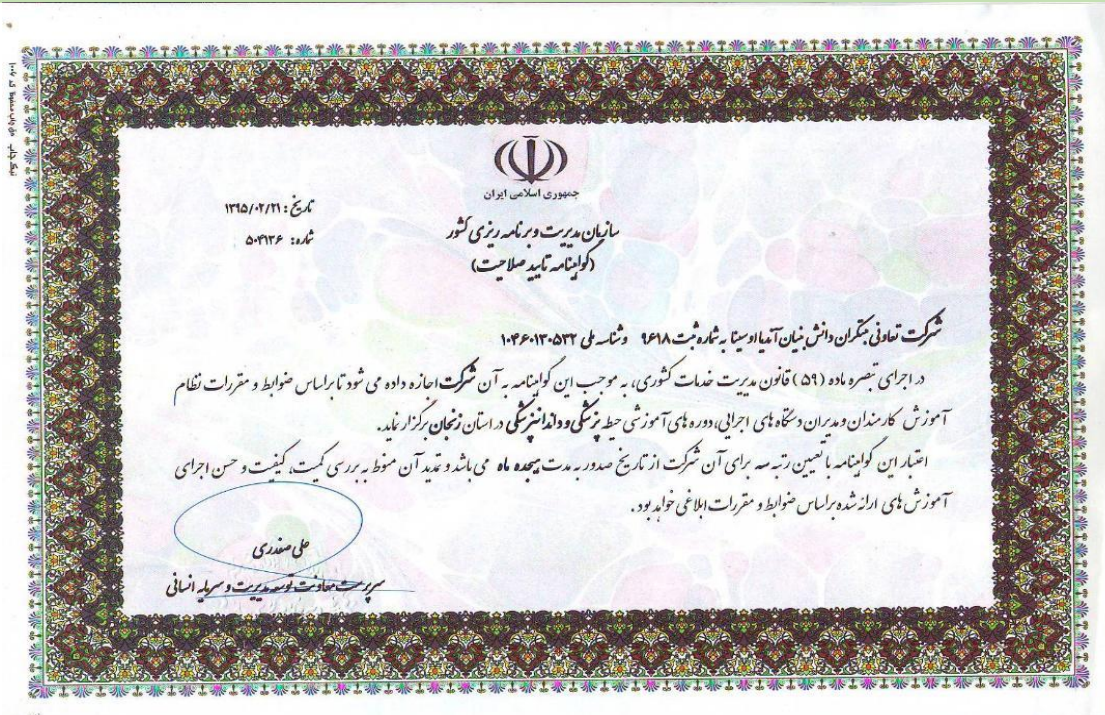 جمهوری اسلامی ایران
تاریخ : ۱۳۹۵/۰۲/۲۱
شماره : ۵۰۴۱۳۶
سازمان مدیریت و برنامه ریزی کشور
(گواهینامه تایید صلاحیت)
شرکت تعاونی مبتکران دانش بنیان آندیا اوسینا به شماره ثبت ۹۶۱۸ و شناسه ملی ۱۰۴۶۰۱۳۰۵۳۲
در اجرای تبصره ماده (۵۹) قانون مدیریت خدمات کشوری، به موجب این گواهینامه به آن شرکت اجازه داده می شود تا براساس ضوابط و مقررات نظام
آموزش کارمندان و مدیران دستگاه های اجرایی، دوره های آموزشی حیطه پزشکی و دندانپزشکی در استان زنجان برگزار نماید.
اعتبار این گواهینامه با تعیین رتبه سه برای آن شرکت از تاریخ صدور به مدت هیجده ماه می باشد و تمدید آن منوط به بررسی کمیت، کیفیت و حسن اجرای
آموزش های ارائه شده براساس ضوابط و مقررات ابلاغی خواهد بود.
علی صفدری
سرپرست معاونت توسعه مدیریت و سرمایه انسانی